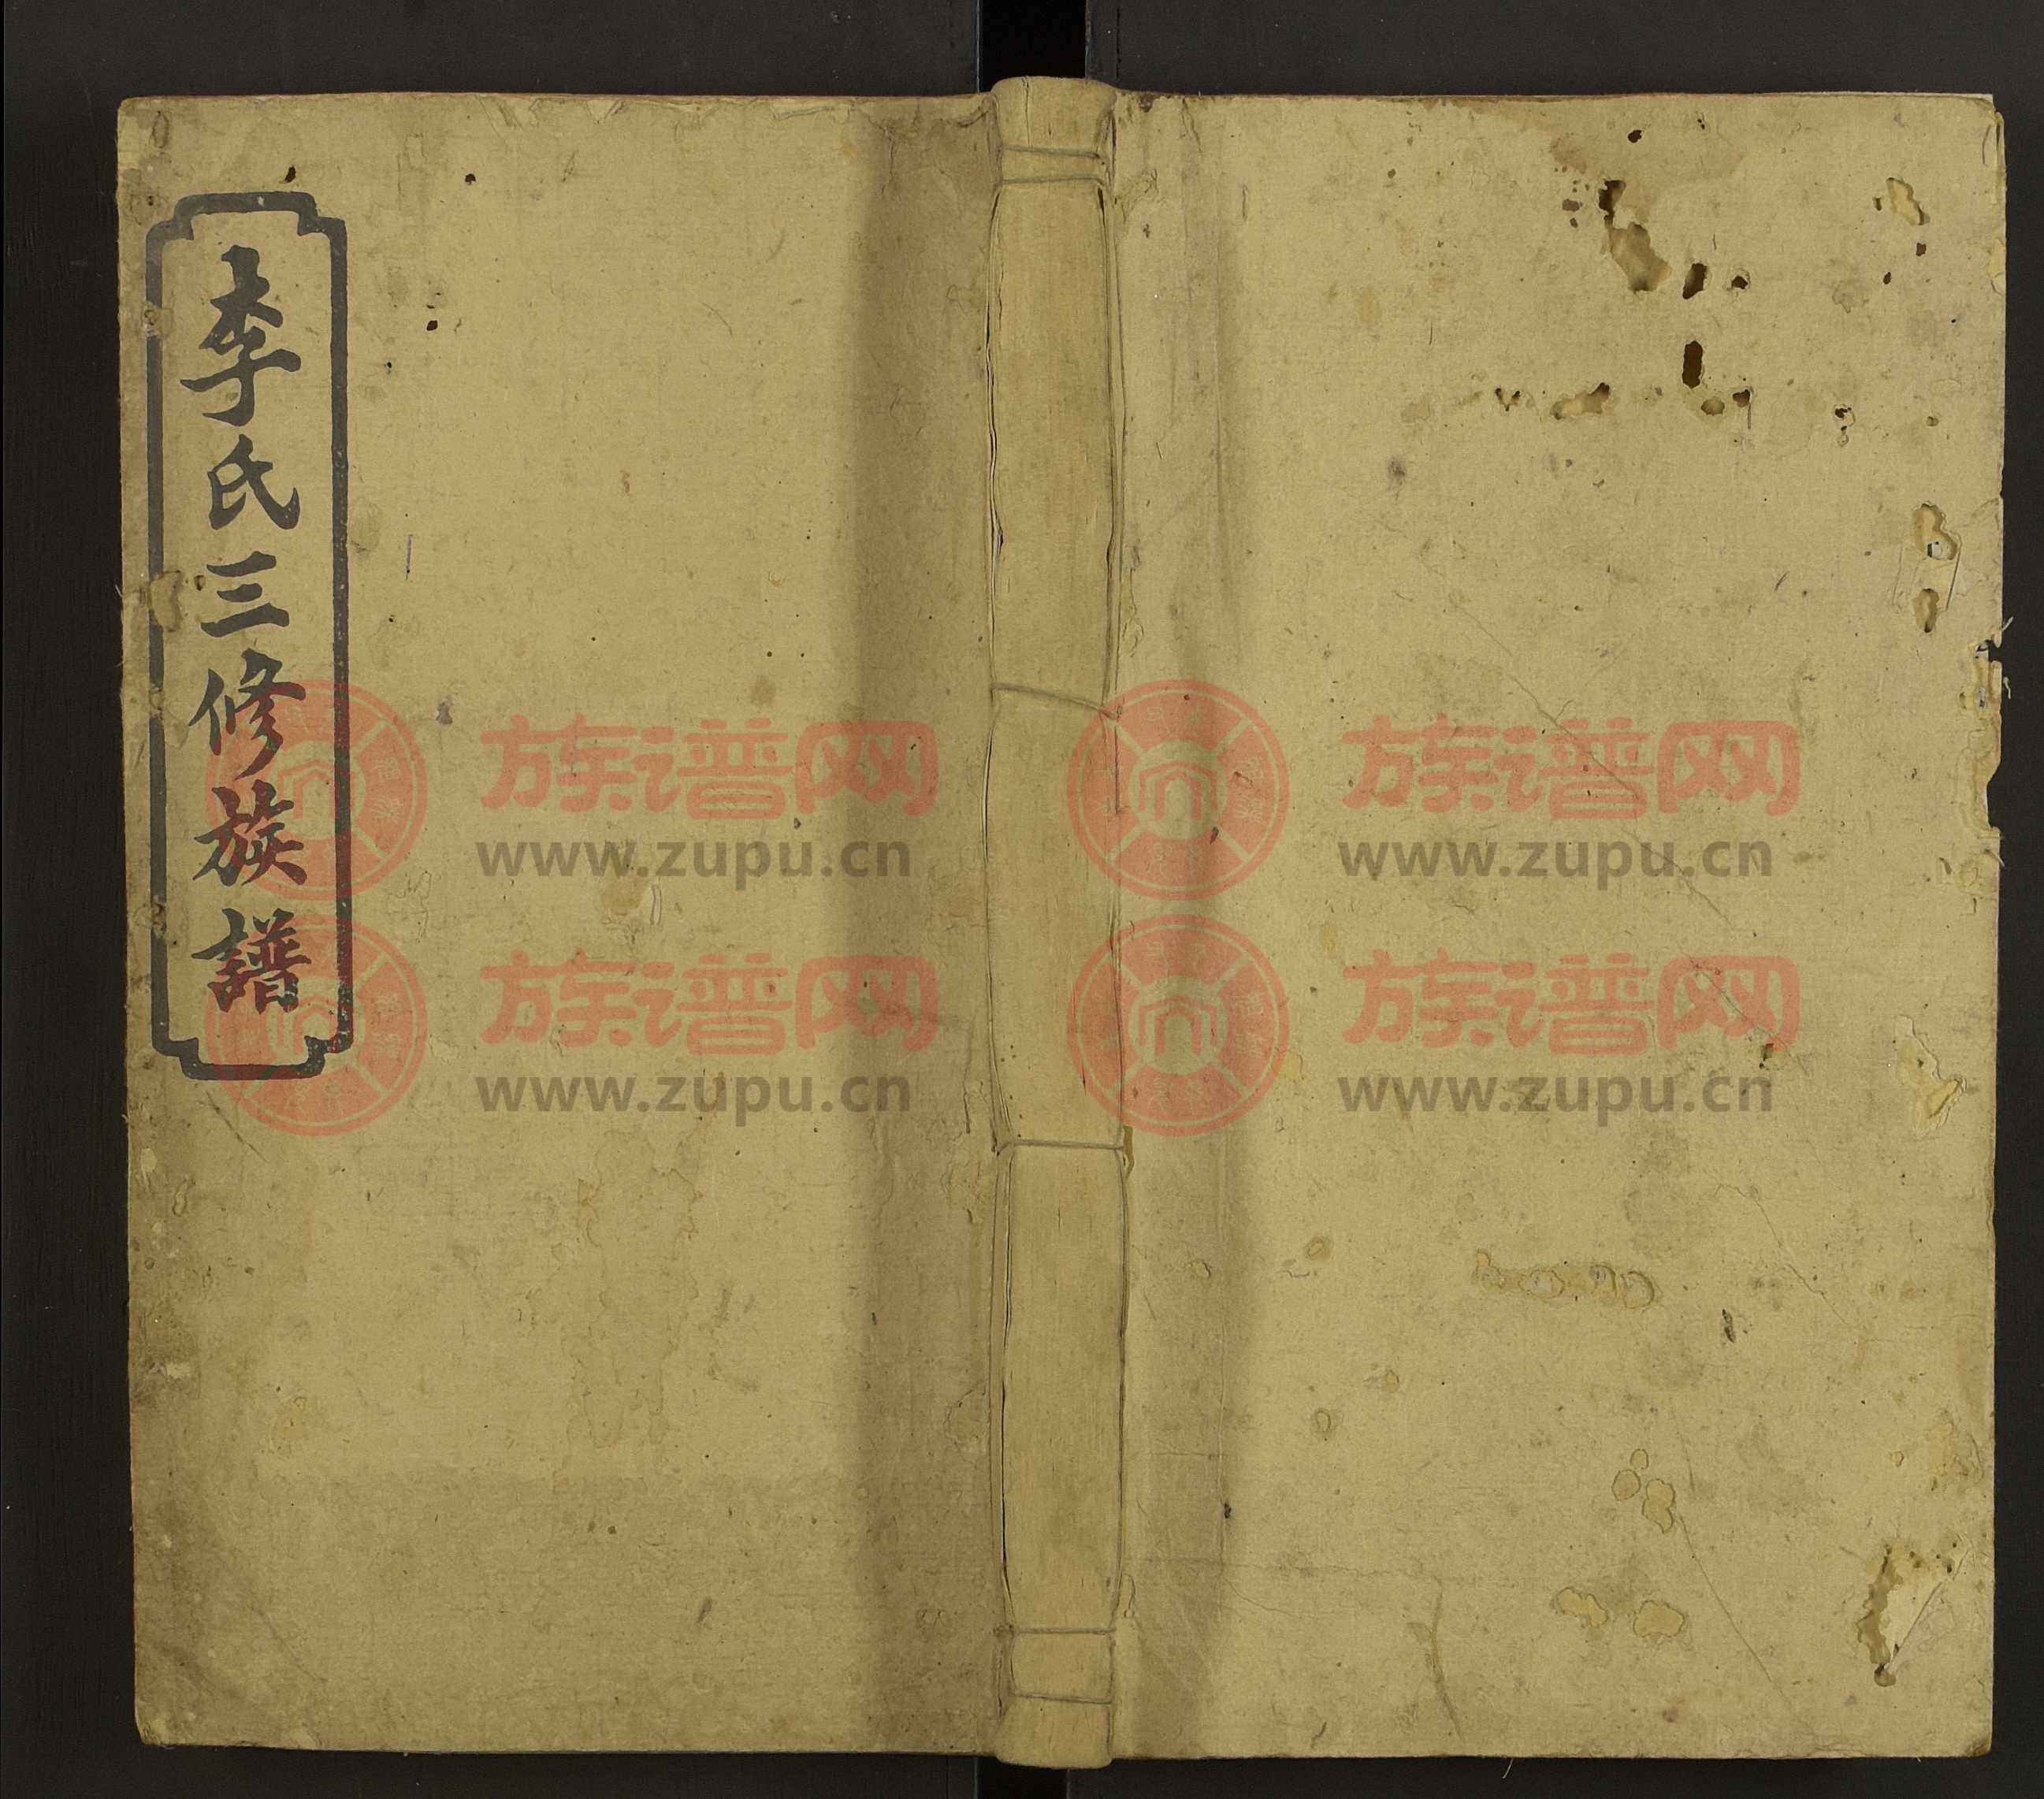 李氏三修族譜
族谱网
www.zupu.cn
族谱网
www.zupu.cn
族谱网
www.zupu.cn
族谱网
www.zupu.cn